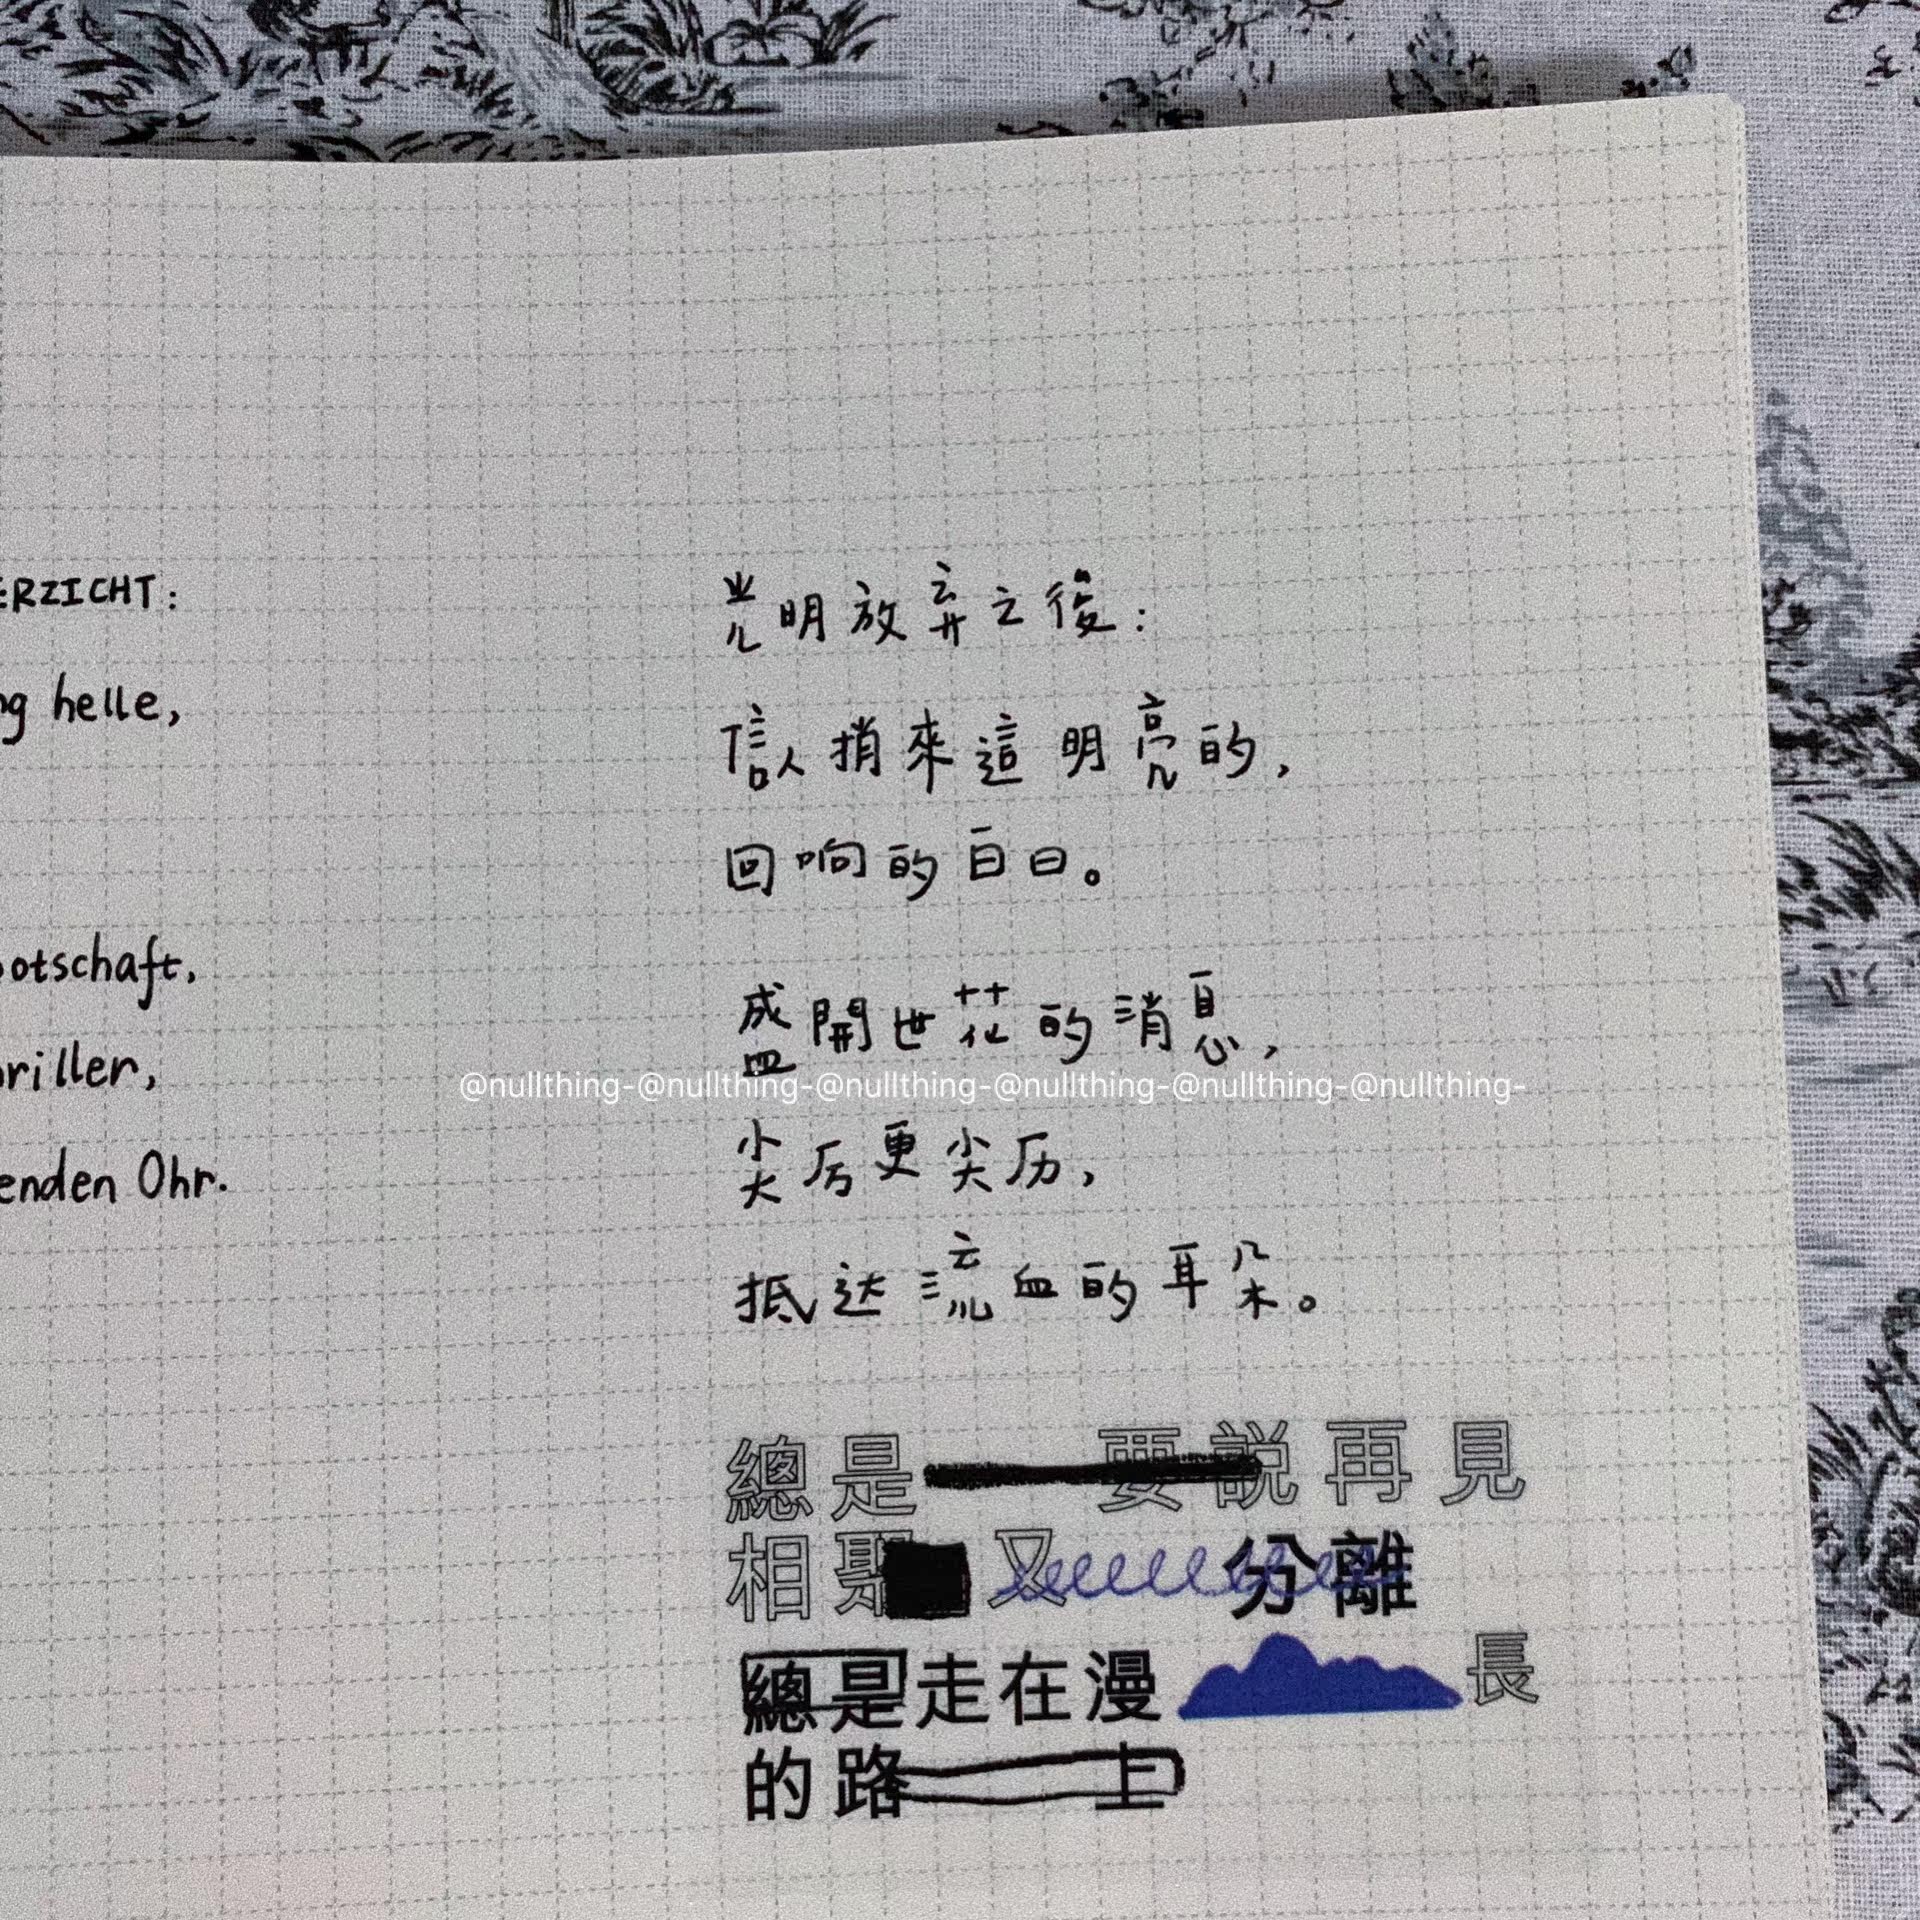 ERZICHT:
ng helle,
otschaft,
riller,
enden Ohr.
光明放弃之後:
信人捎來這明亮的,
回响的白日。
盛開世花的消息,
尖厉更尖历,
抵达流血的耳朵。
@nullthing-@nullthing-@nullthing-@nullthing-@nullthing-@nullthing-
總是 要説再見
相聚 又 分離
總是走在漫 長
的路 上